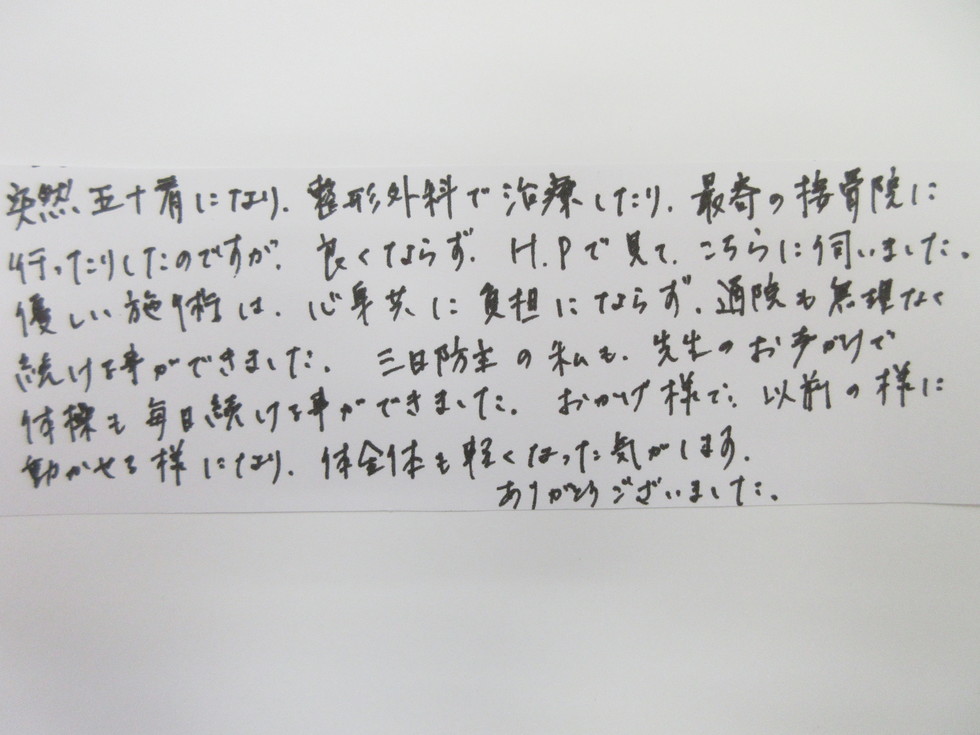 突然五十肩になり、整形外科で治療したり、最寄の接骨院に
行ったりしたのですが、良くならず、H.Pで見て、こちらに伺いました。
優しい施術は、心身共に負担にならず、通院も無理なく
続ける事ができました。 三日防主の私も、先生のおかげで
体操も毎日続ける事ができました。 おかげ様で、以前の様に
動かせる様になり、体全体も軽くなった気がします。
ありがとうございました。